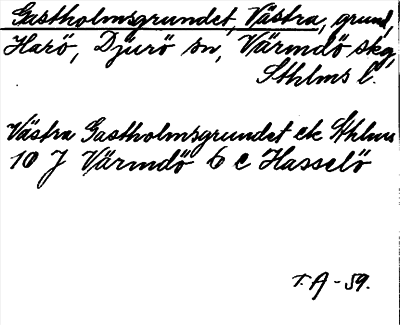 Gastholmsgrundet, Västra, grund,
Harö, Djurö sn, Värmdö skg,
Sthlms l.
Västra Gastholmsgrundet ek Sthlms
10 J Värmdö 6 c Hasselö
T.A-59.